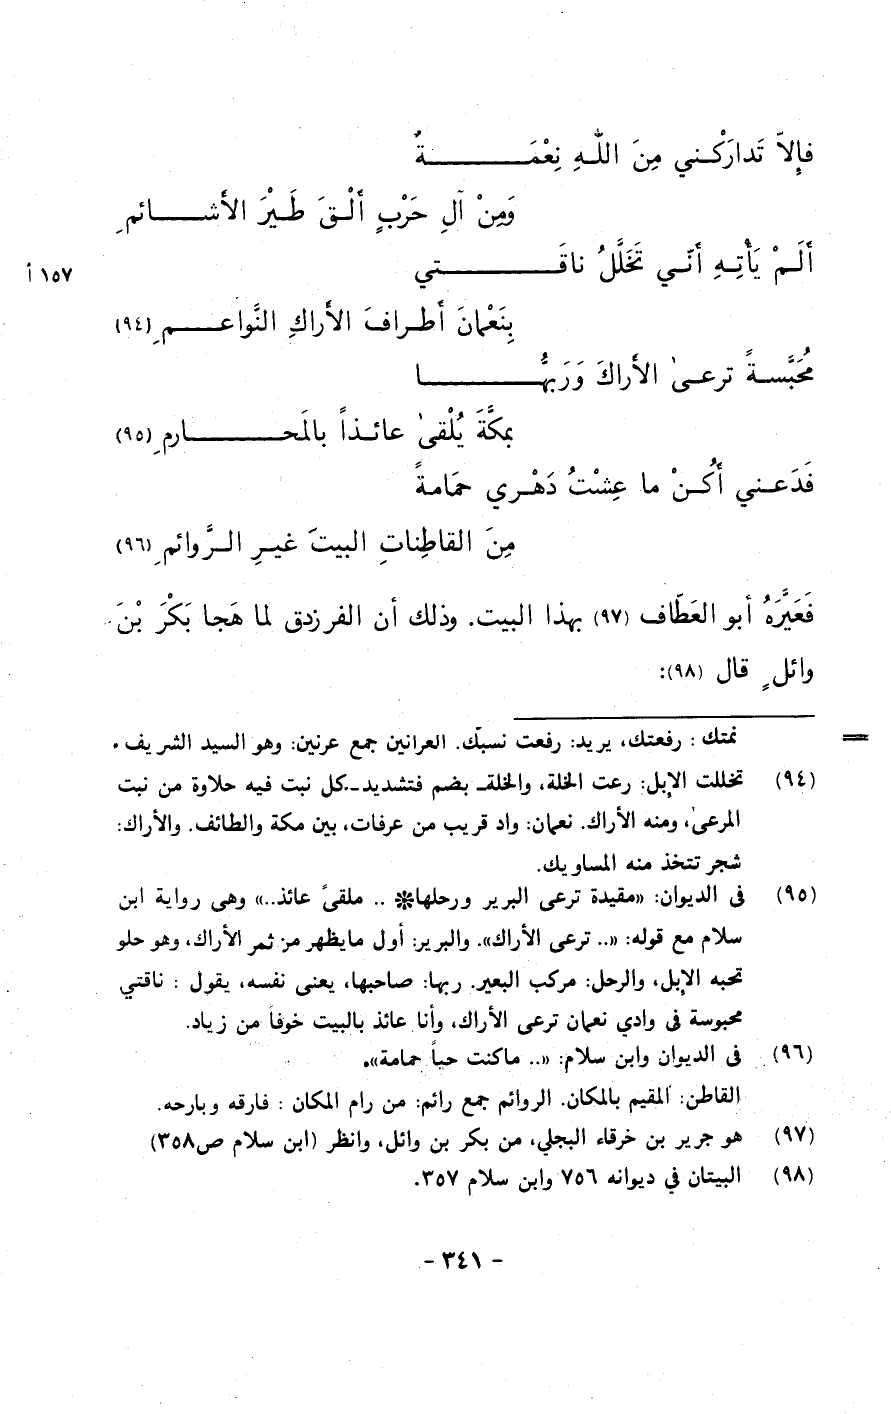 فإلاّ تَدارَكْني مِنَ اللهِ نِعْمَـــــــةٌ
وَمِنْ آلِ حَرْبٍ أَلْقَ طَيْرَ الأشـــــائمِ
أَلَمْ يَأْتِهِ أنّي تَخَلَّلُ ناقَـــــــتي
١٥٧ أ
بِنَعْمانَ أطرافَ الأراكِ النَّواعـــــمِ (٩٤)
مُحَبَّسةً ترعىٰ الأراكَ وَرَبُّهـــــــا
بمكَّةَ يُلْقىٰ عائذاً بالمَحـــــــارمِ (٩٥)
فَدَعني أكُنْ ما عِشْتُ دَهْري حمَامةً
مِنَ القاطِناتِ البيتَ غيرِ الرَّوائمِ (٩٦)
فَعَيَّرَهُ أبو العَطّاف (٩٧) بهذا البيت. وذلك أن الفرزدق لما هَجا بَكْرَ بْنَ
وائلٍ قال (٩٨):
= نمتك: رفعتك، يريد: رفعت نسبك. العرانين جمع عرنين: وهو السيد الشريف.
(٩٤) تخللت الإبل: رعت الخلة، والخلة- بضم فتشديد-..كل نبت فيه حلاوة من نبت
المرعىٰ، ومنه الأراك. نعمان: واد قريب من عرفات، بين مكة والطائف. والأراك:
شجر تتخذ منه المساويك.
(٩٥) فى الديوان: «مقيدة ترعى البرير ورحلها* .. ملقىً عائذ..» وهى رواية ابن
سلام مع قوله: «.. ترعى الأراك». والبرير: أول مايظهر من ثمر الأراك، وهو حلو
تحبه الإبل، والرحل: مركب البعير. ربها: صاحبها، يعنى نفسه، يقول: ناقتي
محبوسة فى وادي نعمان ترعى الأراك، وأنا عائذ بالبيت خوفاً من زياد.
(٩٦) فى الديوان وابن سلام: «.. ماكنت حياً حمامة».
القاطن: المقيم بالمكان. الروائم جمع رائم: من رام المكان: فارقه وبارحه.
(٩٧) هو جرير بن خرقاء البجلي، من بكر بن وائل، وانظر (ابن سلام ص٣٥٨)
(٩٨) البيتان في ديوانه ٧٥٦ وابن سلام ٣٥٧.
- ٣٤١ -